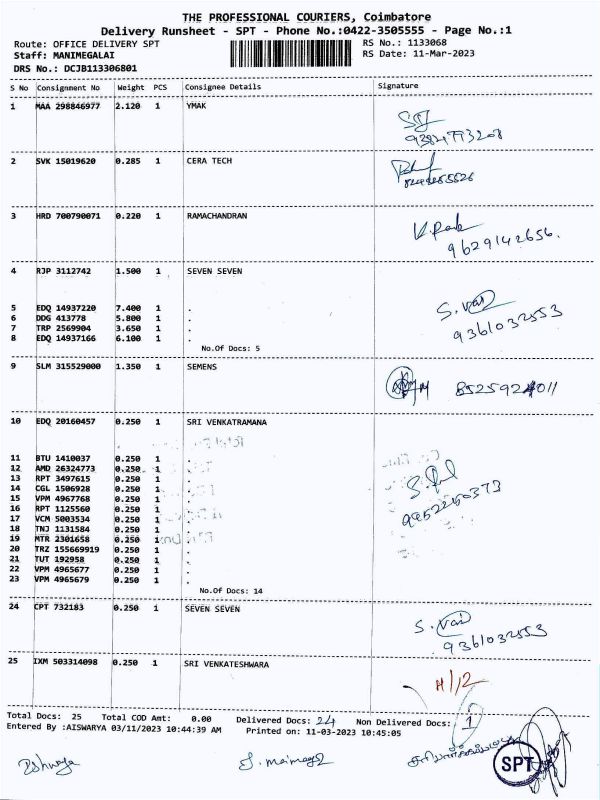 THE PROFESSIONAL COURIERS, Coimbatore
Delivery Runsheet - SPT - Phone No.:0422-3505555 - Page No.:1
Route: OFFICE DELIVERY SPT
RS No.: 1133068
Staff: MANIMEGALAI
RS Date: 11-Mar-2023
DRS No.: DCJB113306801
S No Consignment No Weight PCS Consignee Details Signature
1 MAA 298846977 2.120 1 YMAK
9384773208
2 SVK 15019620 0.285 1 CERA TECH
3 HRD 700790071 0.220 1 RAMACHANDRAN
9629142656.
4 RJP 3112742 1.500 1 SEVEN SEVEN
5 EDQ 14937220 7.400 1 .
6 DDG 413778 5.800 1 .
7 TRP 2569904 3.650 1 .
8 EDQ 14937166 6.100 1 .
S. Vai
9361032553
No.Of Docs: 5
9 SLM 315529000 1.350 1 SEMENS
10 EDQ 20160457 0.250 1 SRI VENKATRAMANA
11 BTU 1410037 0.250 1 .
12 AMD 26324773 0.250 1 .
13 RPT 3497615 0.250 1 .
14 CGL 1506928 0.250 1 .
15 VPM 4967768 0.250 1 .
16 RPT 1125560 0.250 1 .
17 VCM 5003534 0.250 1 .
18 TNJ 1131584 0.250 1 .
19 MTR 2301658 0.250 1 .
20 TRZ 155669919 0.250 1 .
21 TUT 192958 0.250 1 .
22 VPM 4965677 0.250 1 .
23 VPM 4965679 0.250 1 .
9952250373
No.Of Docs: 14
24 CPT 732183 0.250 1 SEVEN SEVEN
S. Vai
9361032553
25 IXM 503314098 0.250 1 SRI VENKATESHWARA
Total Docs: 25 Total COD Amt: 0.00 Delivered Docs: 24 Non Delivered Docs: 1
Entered By :AISWARYA 03/11/2023 10:44:39 AM Printed on: 11-03-2023 10:45:05
SPT